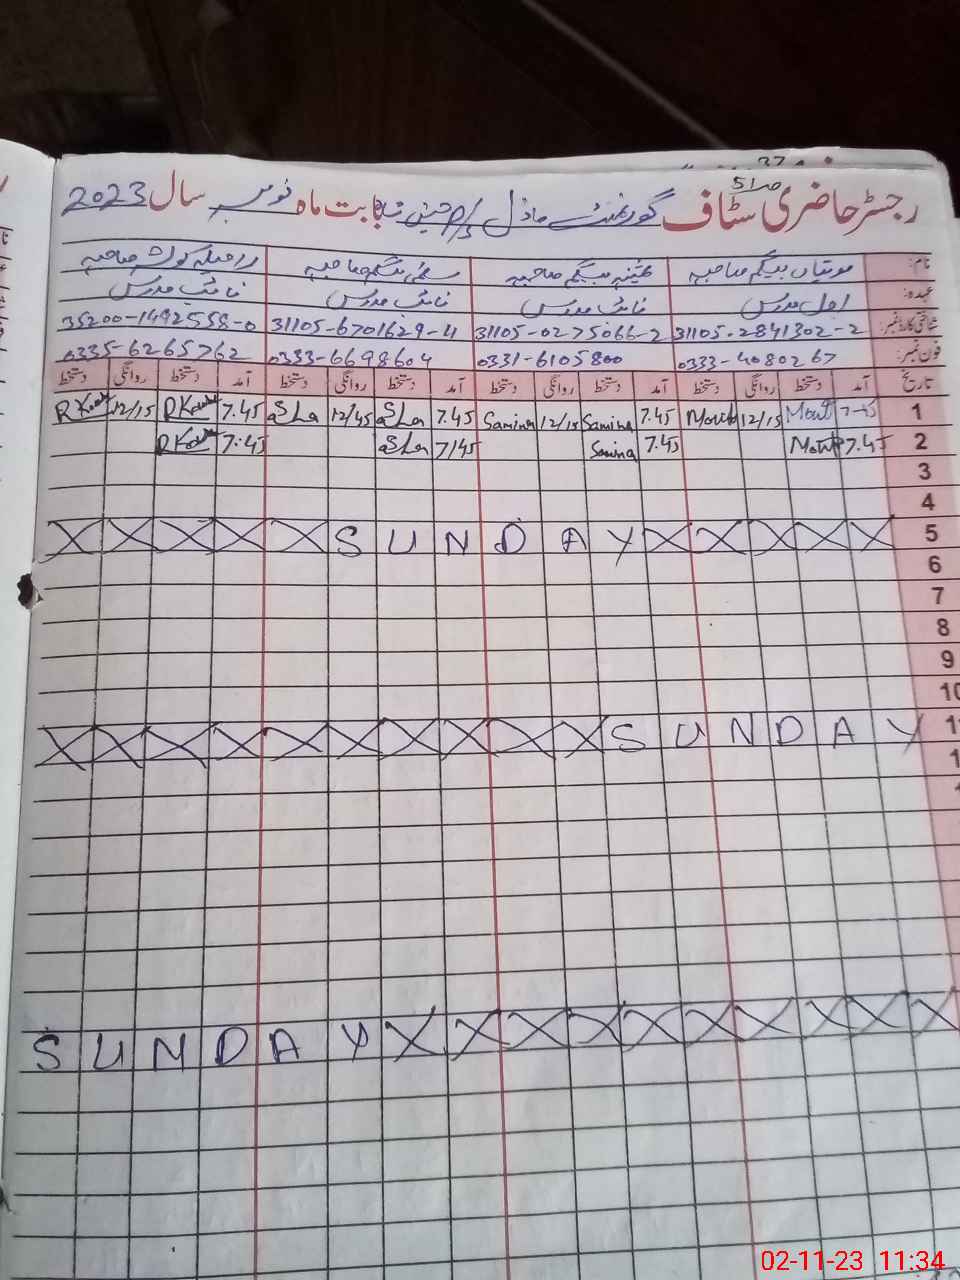 رجسٹر حاضری سٹاف گورنمنٹ ماڈل بابت ماہ نومبر سال 2023
ص51
نام: موتیاں بیگم صاحبہ ثمینہ بیگم صاحبہ سلمیٰ بیگم صاحبہ راحیلہ کوثر صاحبہ
عہدہ: اول مدرس نائب مدرس نائب مدرس نائب مدرس
شناختی کارڈ نمبر: 31105-2841302-2 31105-0275066-2 31105-6701629-4 35200-1492558-0
فون نمبر: 0333-4080267 0331-6105800 0333-6698604 0335-6265762
تاریخ آمد دستخط روانگی دستخط آمد دستخط روانگی دستخط آمد دستخط روانگی دستخط آمد دستخط روانگی دستخط
1 7-45 12/15 7.45 Samina 12/15 Samina 7.45 12/45 7.45 12/15
2 7.45 7.45 Samina 7/45 7:45
3
4
5 SUNDAY
6
7
8
9
10
SUNDAY
SUNDAY
02-11-23 11:34